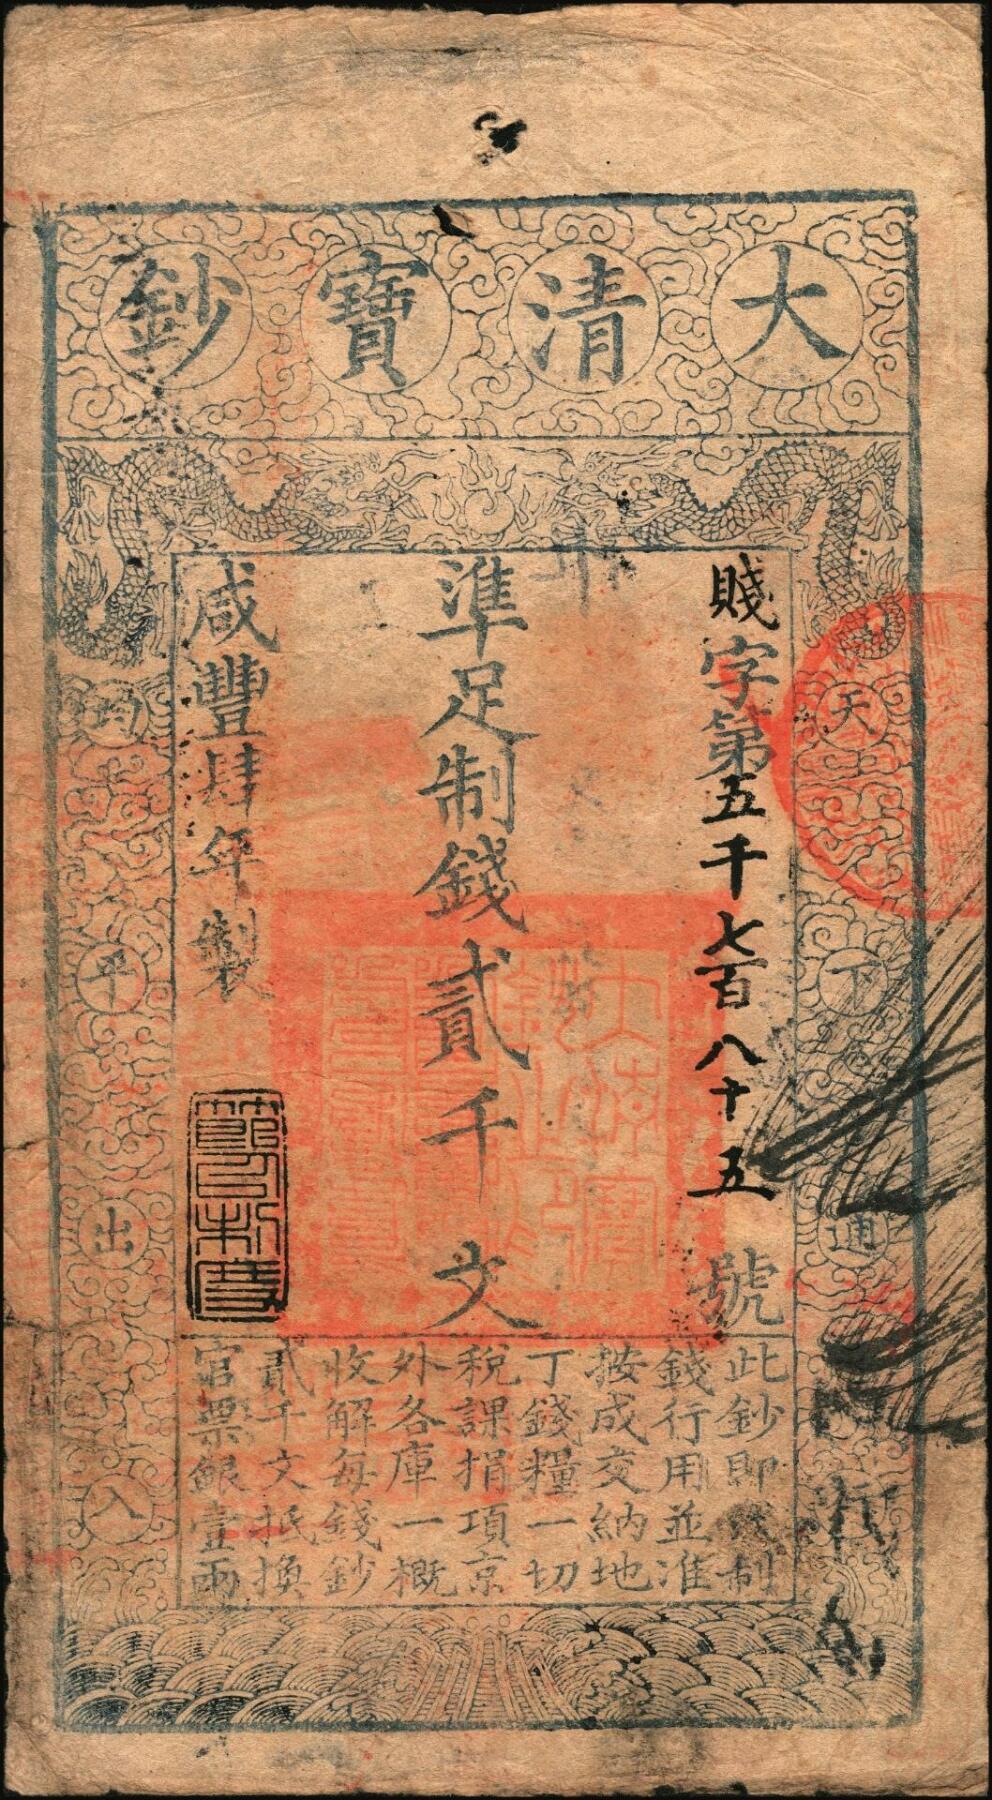 大清寶鈔
賤字第五千七百八十五號
準足制錢貳千文
咸豐肆年製
天下通行
均平出入
此鈔即代制
錢行用並准
按成交納地
丁錢糧一切
稅課捐項京
外各庫一概
收解每錢鈔
貳千文抵換
官票銀壹兩